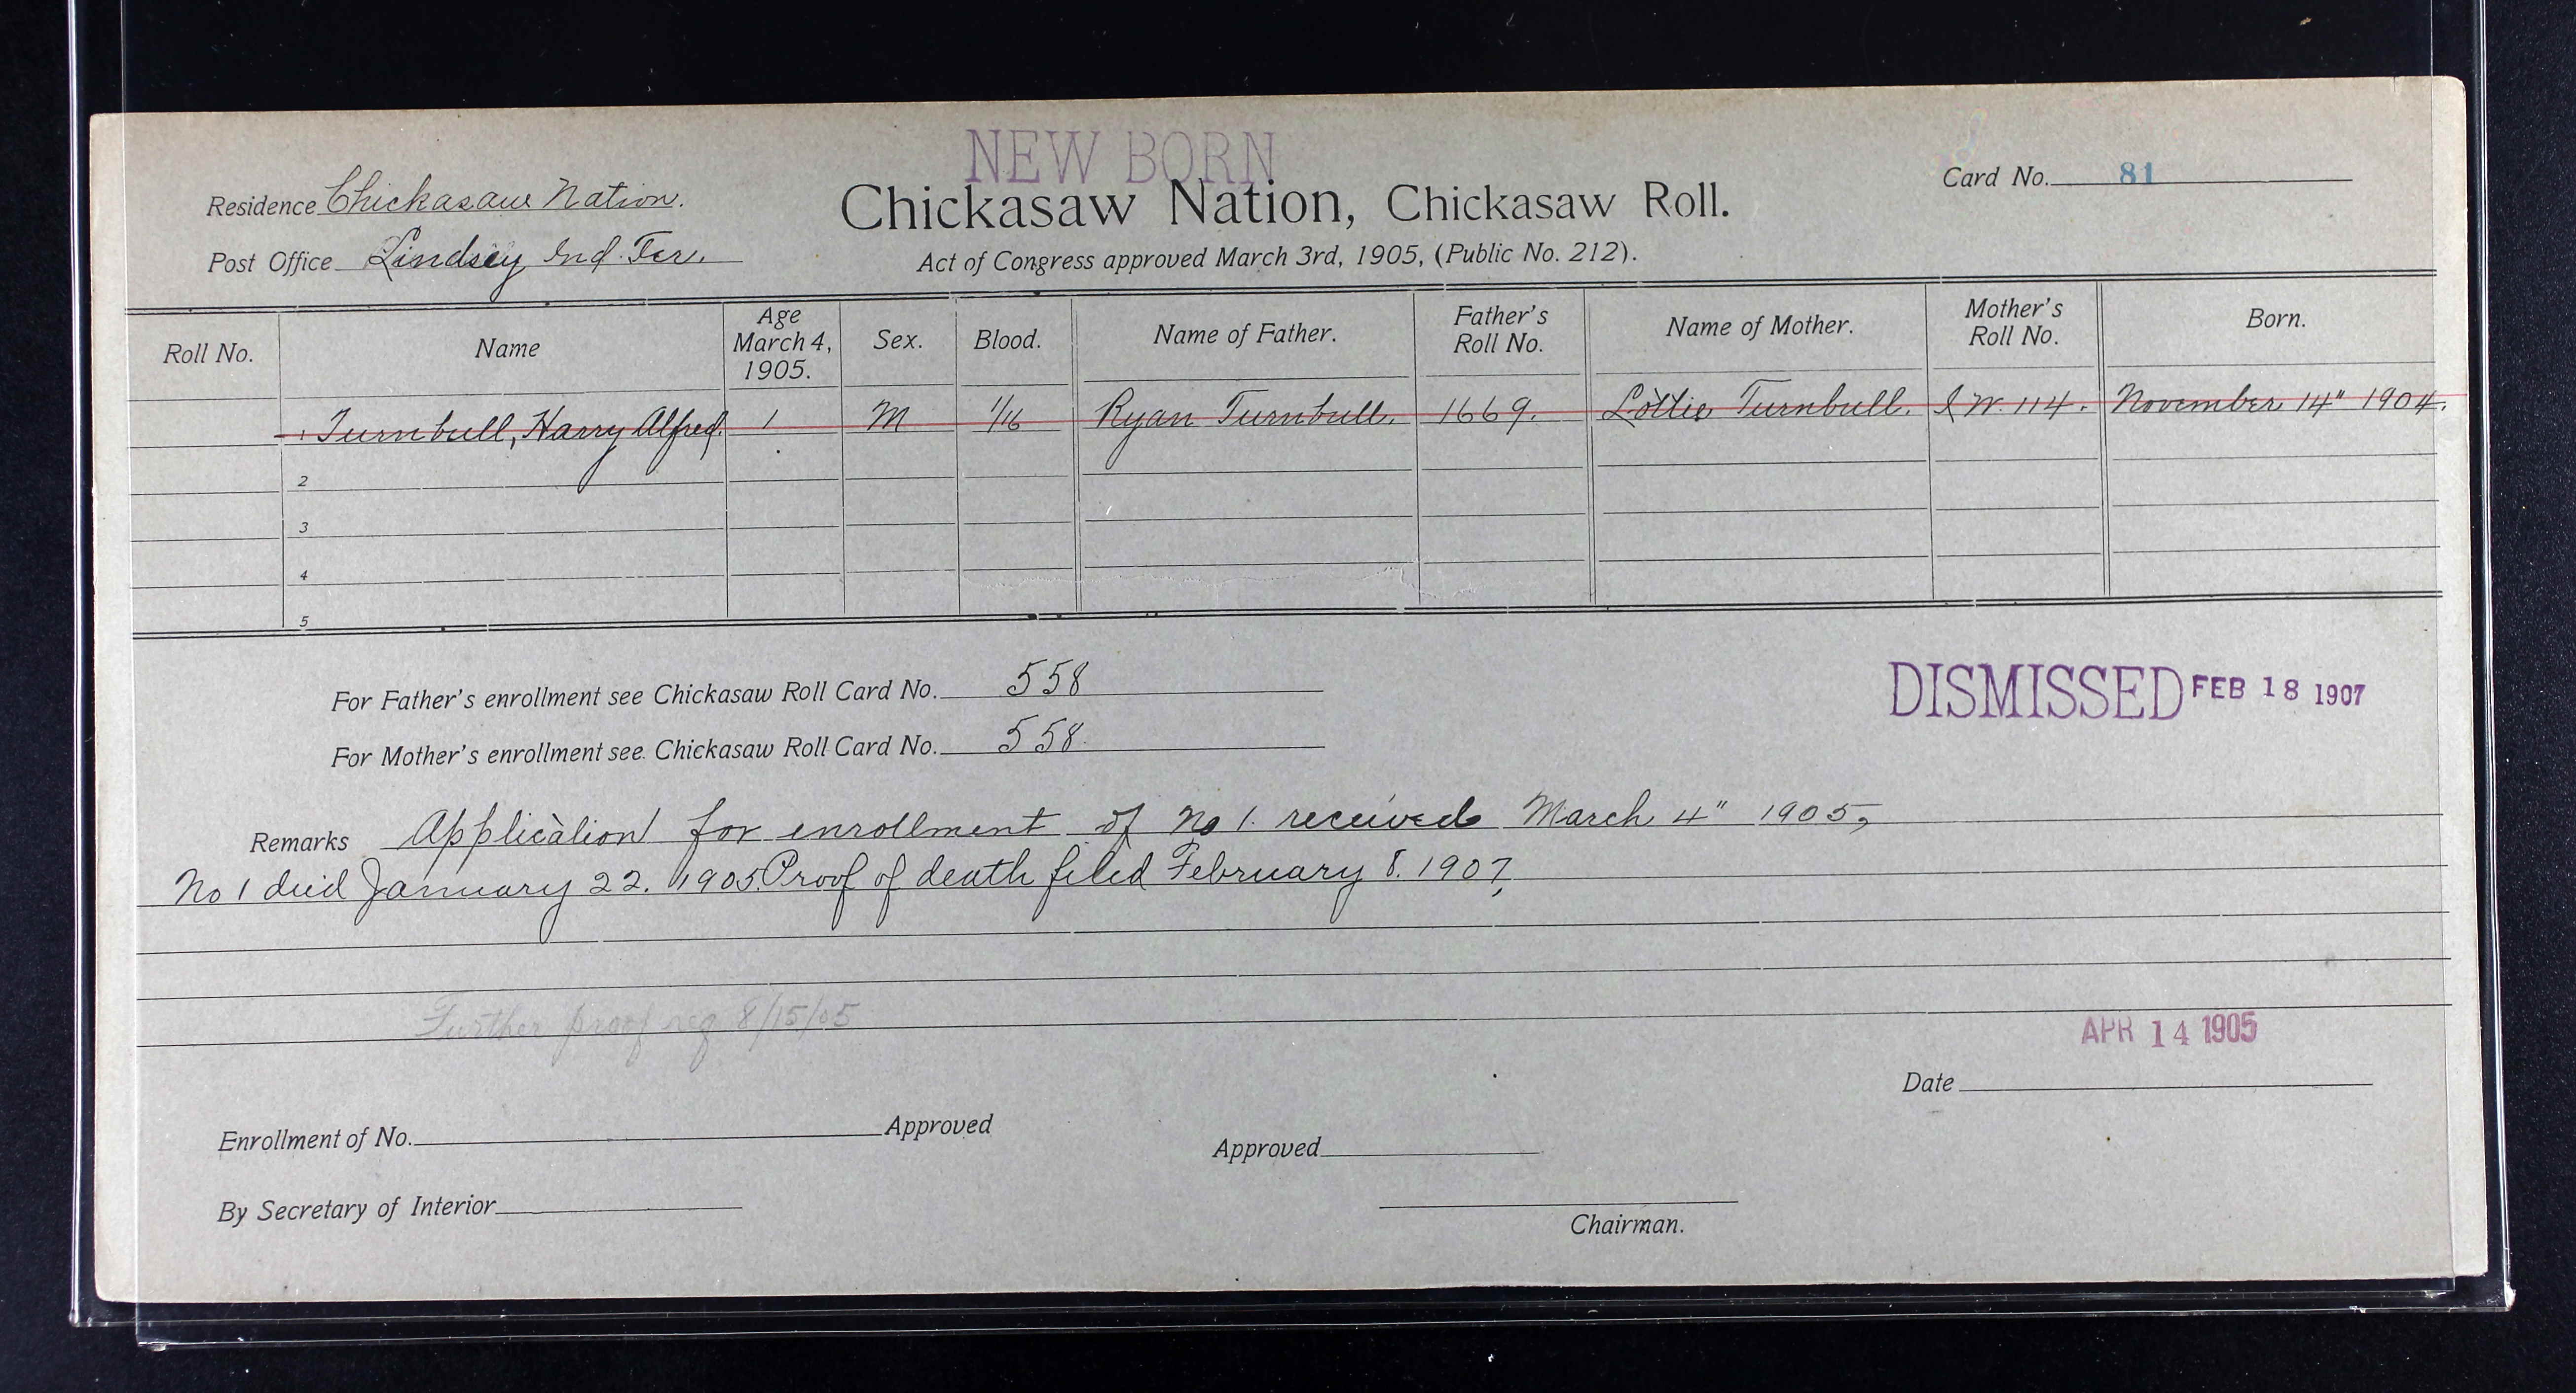 NEW BORN
Residence Chickasaw Nation.
Chickasaw Nation, Chickasaw Roll.
Card No. 81
Post Office Lindsey Ind. Ter.
Act of Congress approved March 3rd, 1905, (Public No. 212).
Roll No. Name Age March 4, 1905. Sex. Blood. Name of Father. Father's Roll No. Name of Mother. Mother's Roll No. Born.
1 Turnbull, Harry Alfred. 1 M 1/16 Ryan Turnbull. 1669. Lottie Turnbull. I W. 114. November 14" 1904.
2
3
4
5
For Father's enrollment see Chickasaw Roll Card No. 558
DISMISSED FEB 18 1907
For Mother's enrollment see Chickasaw Roll Card No. 558.
Remarks Application for enrollment of No 1. received March 4" 1905,
No 1 died January 22. 1905. Proof of death filed February 8. 1907,
Further proof req 8/15/05
APR 14 1905
Date
Enrollment of No. Approved
Approved
By Secretary of Interior
Chairman.